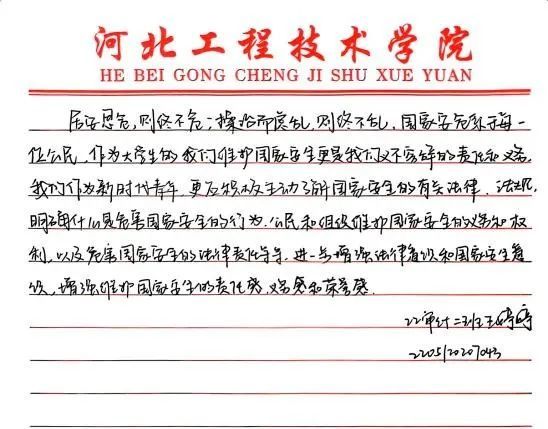 河北工程技术学院
HE BEI GONG CHENG JI SHU XUE YUAN
居安思危,则终不危;操治而虑乱,则终不乱,国家安危系于每一
位公民,作为大学生的我们维护国家安全更是我们义不容辞的责任和义务。
我们作为新时代青年,更应积极主动了解国家安全的有关法律、法规,
明确什么是危害国家安全的行为,公民和组织维护国家安全的义务和权
利,以及危害国家安全的法律责任等等。进一步增强法律意识和国家安全意
识,增强维护国家安全的责任感、义务感和荣誉感。
22审计二班王婷婷
2205120207043